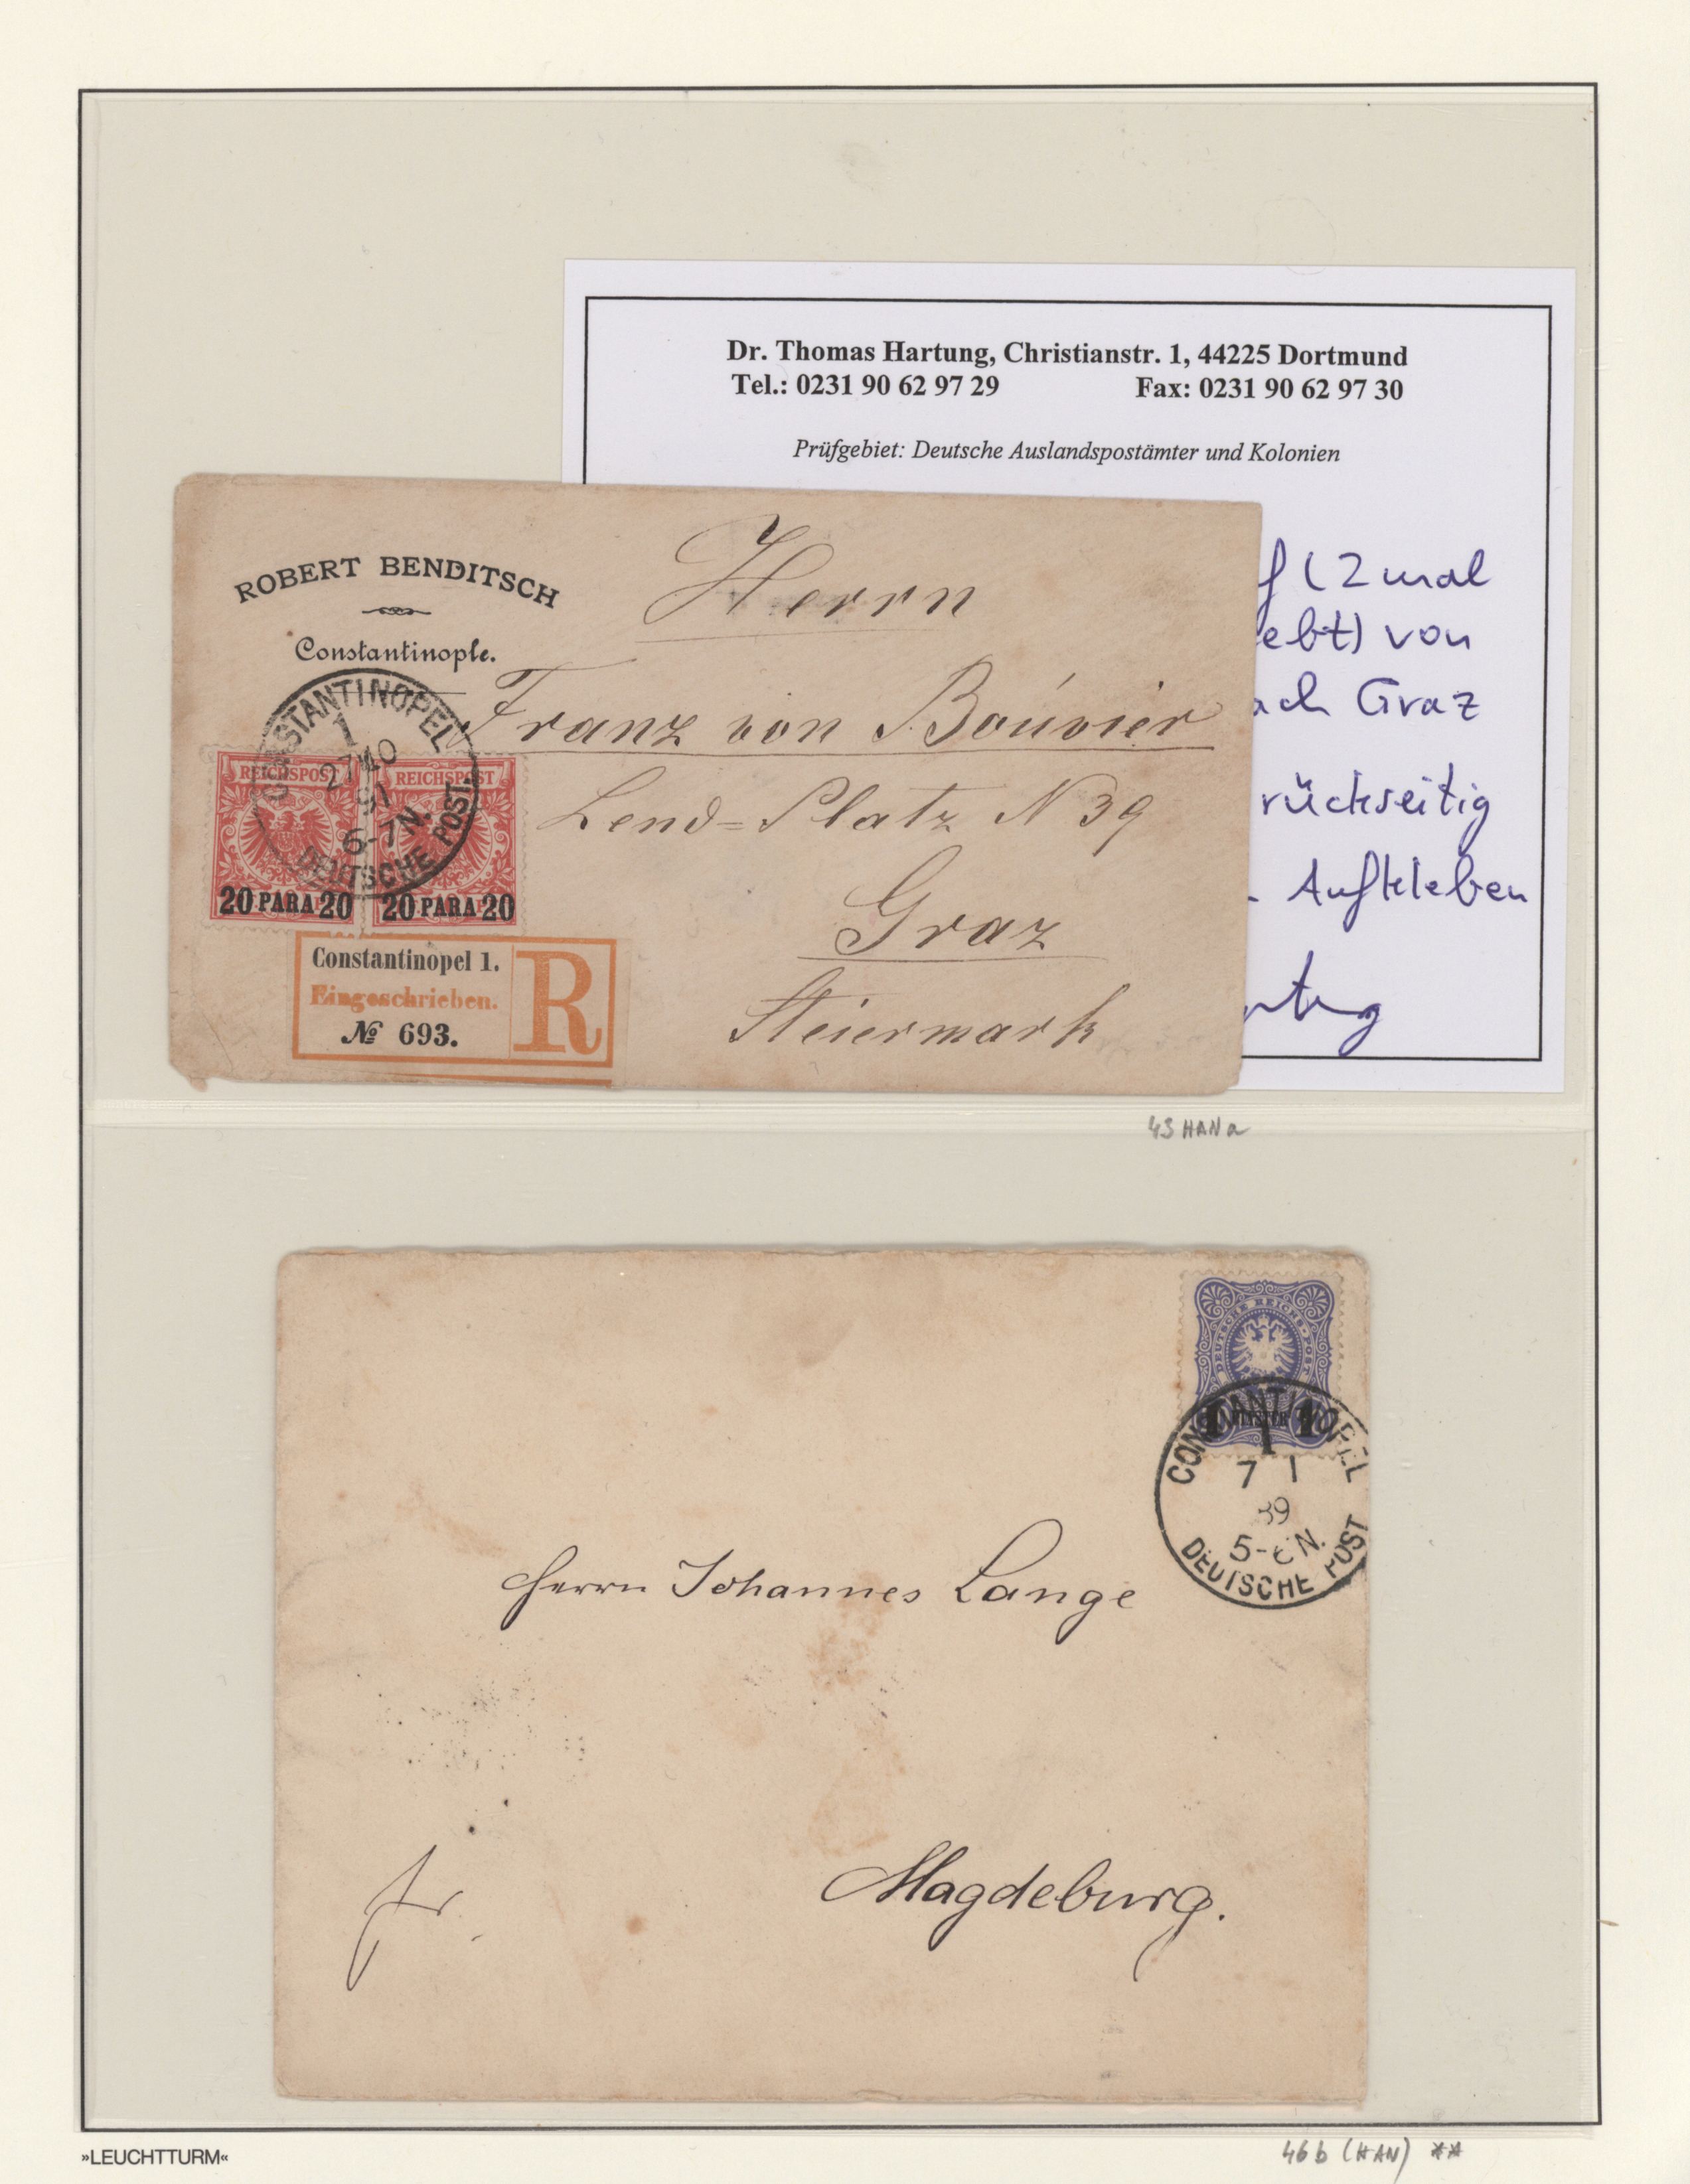 Dr. Thomas Hartung, Christianstr. 1, 44225 Dortmund
Tel.: 0231 90 62 97 29 Fax: 0231 90 62 97 30
Prüfgebiet: Deutsche Auslandspostämter und Kolonien
f (2 mal
ebt) von
ach Graz
rückseitig
Aufkleben
ROBERT BENDITSCH
Constantinople.
Herrn
Franz von Bouvier
Lend=Platz N 39
Graz
Steiermark
CONSTANTINOPEL
1
27 10
91
6-7N.
DEUTSCHE POST.
REICHSPOST
20 PARA 20
REICHSPOST
20 PARA 20
Constantinopel 1.
Eingeschrieben.
№ 693.
R
43 HAN a
DEUTSCHE REICHS-POST
1 PIASTER 1
CONSTANTINOPEL
1
7 1
89
5-6N.
DEUTSCHE POST
Herrn Johannes Lange
fr.
Magdeburg.
»LEUCHTTURM«
46 b (HAN) **